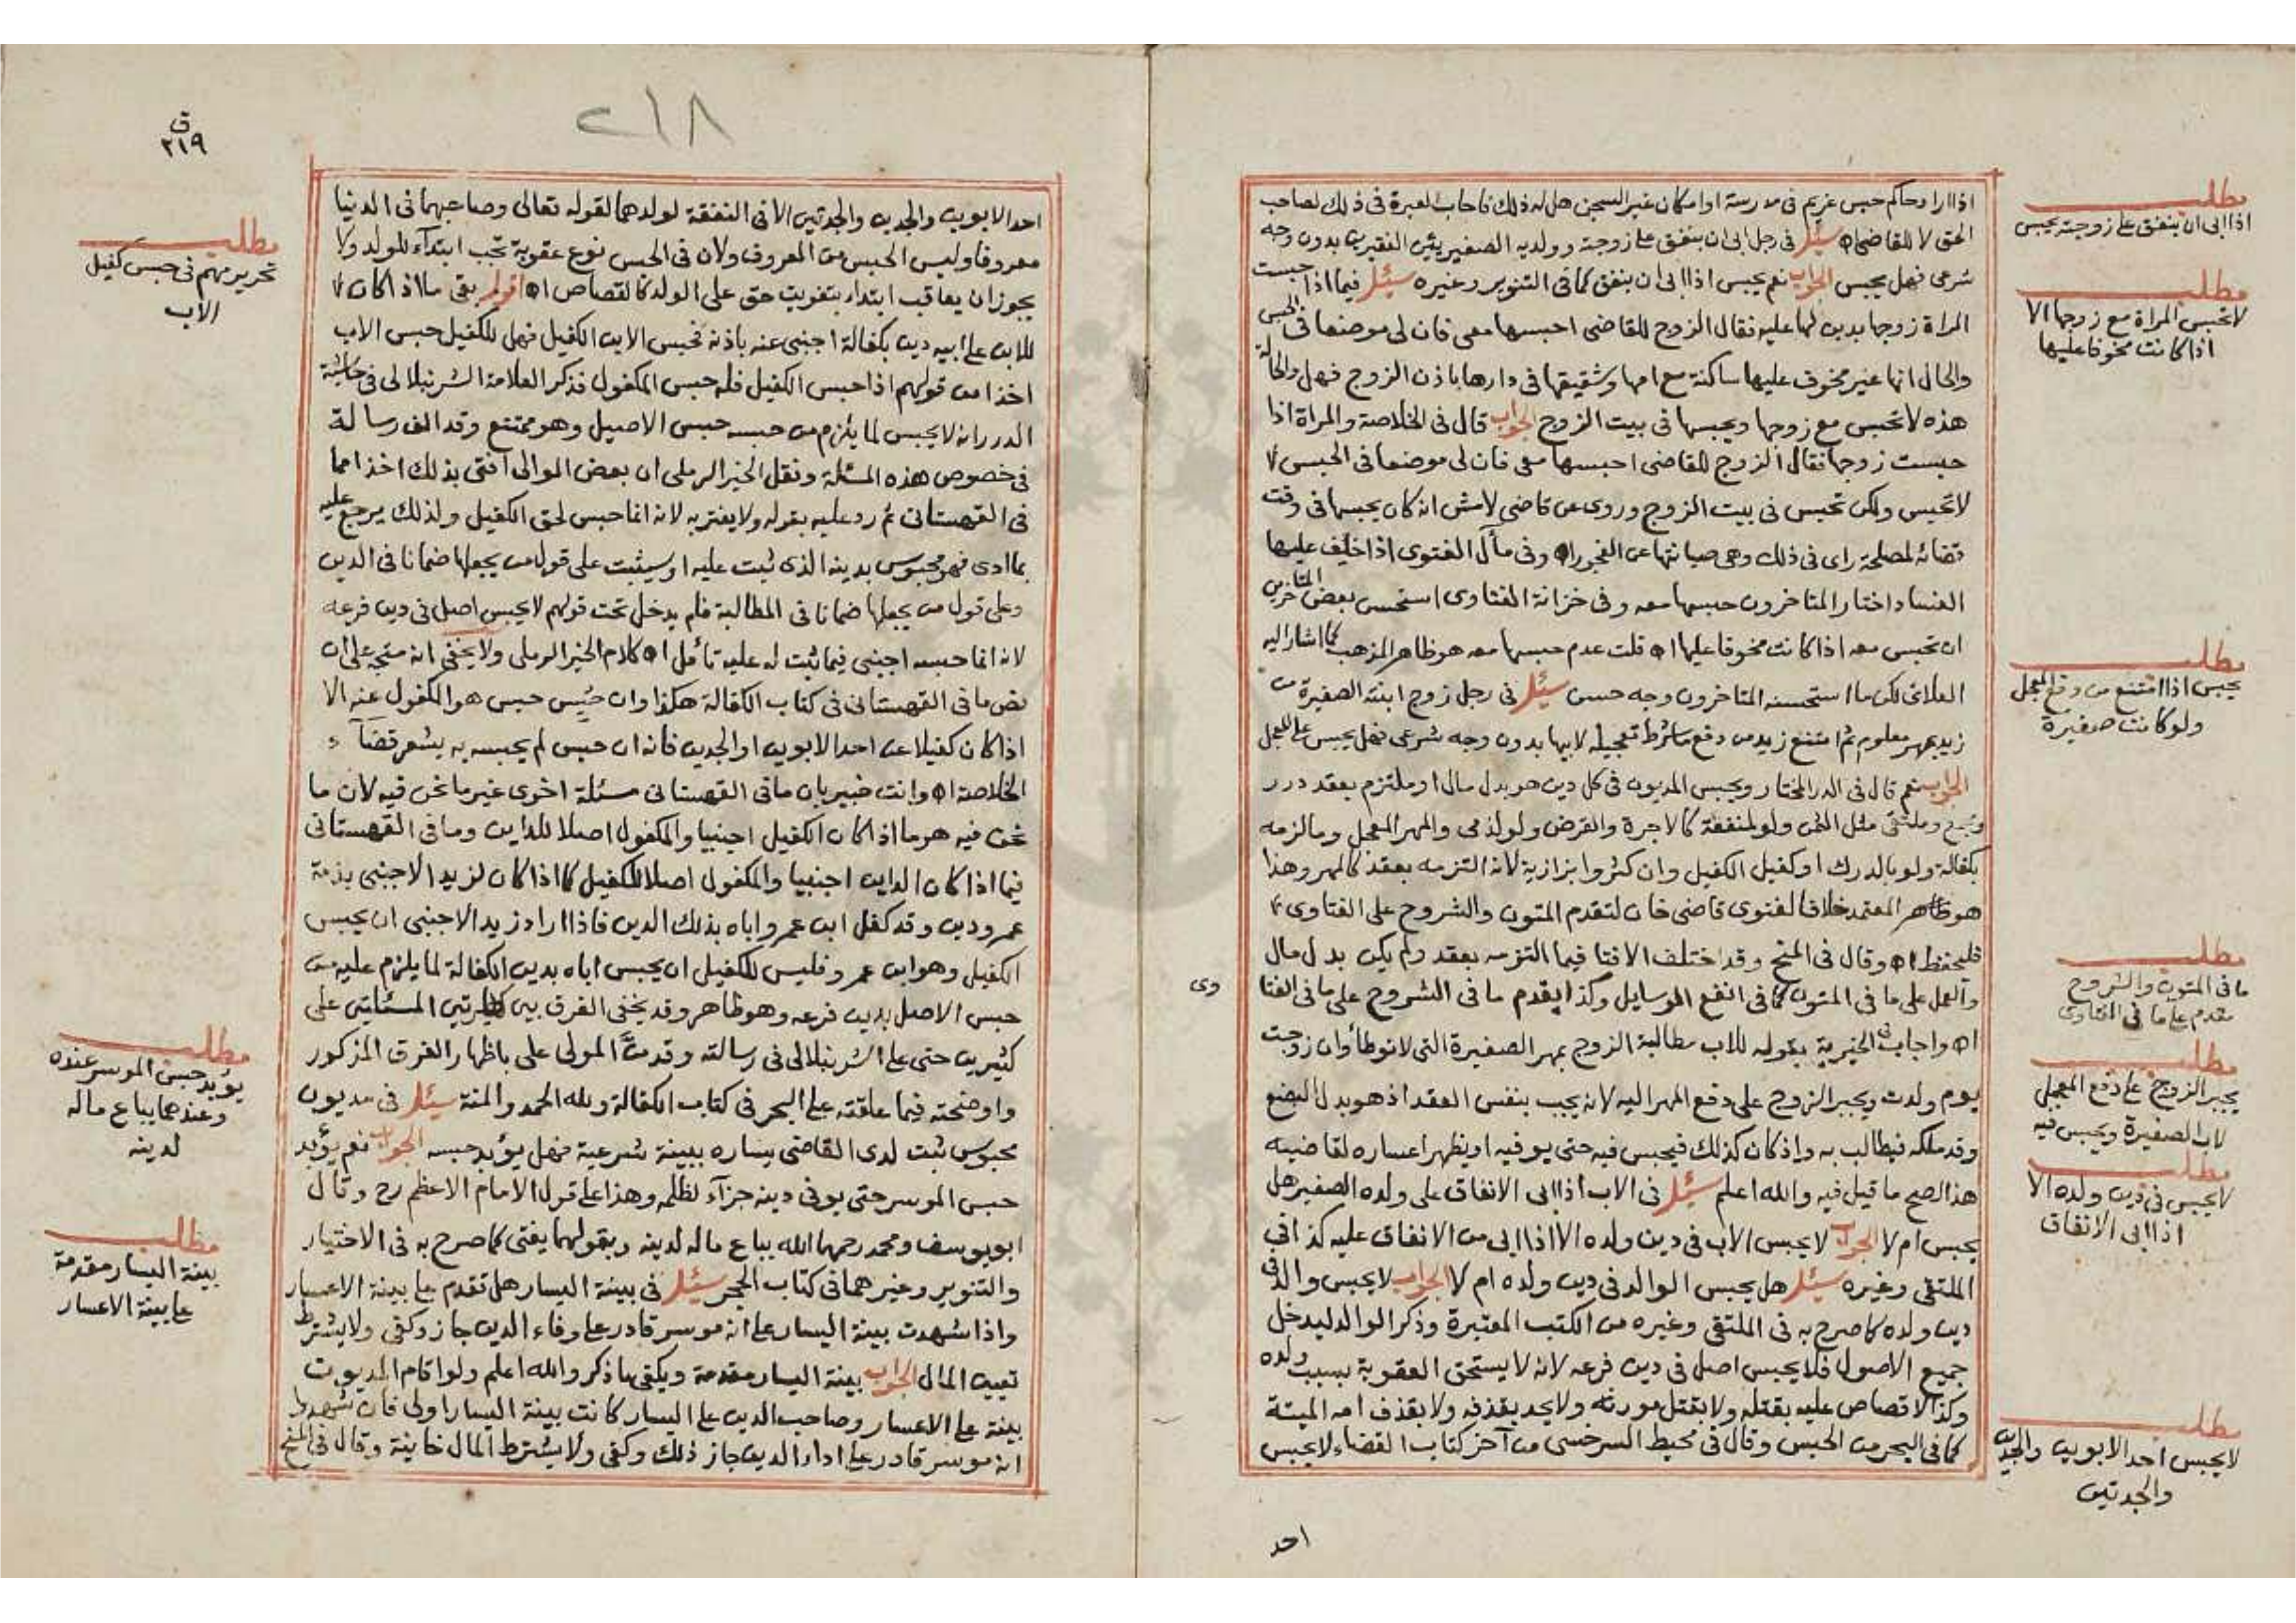 اذا اراد حاكم حبس غريم فى مدرسة او امكان غير السجن هل له ذلك فاجاب العبرة فى ذلك لصاحب
الحق لا للقاضى اه سئل فى رجل ابى ان ينفق على زوجته وولديه الصغيرين الفقيرين بدون وجه
شرعى فهل يحبس الجواب نعم يحبس اذا ابى ان ينفق كما فى التنوير وغيره سئل فيما اذا حبست
المراة زوجها بدين لها عليه فقال الزوج للقاضى احبسها معى فان لى موضعا فى الحبس
والحال انها غير مخوف عليها ساكنة مع امها وشقيقها فى دارها باذن الزوج فهل والحالة
هذه لا تحبس مع زوجها ويحبسها فى بيت الزوج الجواب قال فى الخلاصة والمراة اذا
حبست زوجها فقال الزوج للقاضى احبسها معى فان لى موضعا فى الحبس لا
لا تحبس ولكن تحبس فى بيت الزوج وروى عن قاضى لامش انه كان يحبسها فى وقت
قضائه لمصلحة راى فى ذلك وهى صيانتها عن الفجور اه وفى مآل الفتوى اذا خيف عليها
الفساد اختار المتاخرون حبسها معه وفى خزانة الفتاوى استحسن بعض المتاخرين
ان تحبس معه اذا كانت مخوفا عليها اه قلت عدم حبسها معه هو ظاهر المذهب كما اشار اليه
العلائى لكن ما استحسنه المتاخرون وجه حسن سئل فى رجل زوج ابنته الصغيرة من
زيد بمهر معلوم ثم امتنع زيد من دفع ما شرط تعجيله لابيها بدون وجه شرعى فهل يحبس على المعجل
الجواب نعم قال فى الدر المختار ويحبس المديون فى كل دين هو بدل مال او ملتزم بعقد درر
ومجمع وملتقى مثل الثمن ولو لمنفعة كالاجرة والقرض ولو لذمى والمهر المعجل وما لزمه
بكفالة ولو بالدرك او كفيل الكفيل وان كثروا بزازية لانه التزمه بعقد كالمهر وهذا
هو ظاهر المعتمد خلافا لفتوى قاضى خان لتقدم المتون والشروح على الفتاوى
فليحفظ اه وقال فى المنح وقد اختلف الافتا فيما التزمه بعقد ولم يكن بدل مال
والعمل على ما فى المتون كما فى انفع الوسايل وكذا يقدم ما فى الشروح على ما فى الفتا
وى
اه واجاب فى الخيرية بقوله للاب مطالبة الزوج بمهر الصغيرة التى لا توطأ وان زوجت
يوم ولدت ويجبر الزوج على دفع المهر اليه لانه يجب بنفس العقد اذ هو بدل البضع
وقد ملكه فيطالب به واذ كان كذلك فيحبس فيه حتى يوفيه او يظهر اعساره لقاضيه
هذا الصح ما قيل فيه والله اعلم سئل فى الاب اذا ابى الانفاق على ولده الصغير هل
يحبس ام لا الجواب لا يحبس الاب فى دين ولده الا اذا ابى من الانفاق عليه كذا فى
الملتقى وغيره سئل هل يحبس الوالد فى دين ولده ام لا الجواب لا يحبس والد فى
دين ولده كما صرح به فى الملتقى وغيره من الكتب المعتبرة وذكر الوالد ليدخل
جميع الاصول فلا يحبس اصل فى دين فرعه لانه لا يستحق العقوبة بسبب ولده
وكذا لا قصاص عليه بقتله ولا بقتل مورثه ولا يحد بقذفه ولا بقذف امه الميتة
كما فى البحر من الحبس وقال فى محيط السرخسى من آخر كتاب القضاء لا يحبس
احد
مطلب
اذا ابى ان ينفق على زوجته يحبس
مطلب
لا تحبس المراة مع زوجها الا
اذا كانت مخوفا عليها
مطلب
يحبس اذا امتنع من دفع المعجل
ولو كانت صغيرة
مطلب
ما فى المتون والشروح
مقدم على ما فى الفتاوى
مطلب
يجبر الزوج على دفع المعجل
لاب الصغيرة ويحبس فيه
مطلب
لا يحبس فى دين ولده الا
اذا ابى الانفاق
مطلب
لا يحبس احد الابوين والجدين
والجدتين
٢١٨
ق
٢١٩
احد الابوين والجدين والجدتين الا فى النفقة لولدهما لقوله تعالى وصاحبهما فى الدنيا
معروفا وليس الحبس من المعروف ولان فى الحبس نوع عقوبة تجب ابتدآء للولد ولا
يجوز ان يعاقب ابتداء بتفويت حق على الولد كالقصاص اه اقول بقى ما اذا كان
للابن على ابيه دين بكفالة اجنبى عنه باذنه فحبس الابن الكفيل فهل للكفيل حبس الاب
اخذا من قولهم اذا حبس الكفيل فله حبس المكفول فذكر العلامة الشرنبلالى فى حاشية
الدرر انه لا يحبس لما يلزم من حبسه حبس الاصيل وهو ممتنع وقد الف رسالة
فى خصوص هذه المسئلة ونقل الخير الرملى ان بعض الموالى افتى بذلك اخذا مما
فى القهستانى ثم رد عليه بقوله ولا يغتر به لانه انما حبس لحق الكفيل ولذلك يرجع عليه
بما ادى فهو محبوس بدينه الذى ثبت عليه او سيثبت على قول من يجعلها ضمانا فى الدين
وعلى قول من يجعلها ضمانا فى المطالبة فلم يدخل تحت قولهم لا يحبس اصل فى دين فرعه
لانه انما حبسه اجنبى فيما ثبت له عليه تأمل اه كلام الخير الرملى ولا يخفى انه متجه على ان
نص ما فى القهستانى فى كتاب الكفالة هكذا وان حبس حبس هو المكفول عنه الا
اذا كان كفيلا عن احد الابوين او الجدين فانه ان حبس لم يحبسه به يشعر قضآء
الخلاصة اه وانت خبير بان ما فى القهستانى مسئلة اخرى غير ما نحن فيه لان ما
نحن فيه هو ما اذا كان الكفيل اجنبيا والمكفول اصلا للداين وما فى القهستانى
فيما اذا كان الداين اجنبيا والمكفول اصلا للكفيل كما اذا كان لزيد الاجنبى بذمة
عمرو دين وقد كفل ابن عمرو اباه بذلك الدين فاذا اراد زيد الاجنبى ان يحبس
الكفيل وهو ابن عمرو فليس للكفيل ان يحبس اباه بدين الكفالة لما يلزم عليه من
حبس الاصل بدين فرعه وهو ظاهر وقد يخفى الفرق بين المسئلتين على
كثيرين حتى على الشرنبلالى فى رسالته وقد منّ المولى على باظهار الفرق المذكور
واوضحته فيما علقته على البحر فى كتاب الكفالة ولله الحمد والمنة سئل فى مديون
محبوس ثبت لدى القاضى يساره ببينة شرعية فهل يؤبد حبسه الجواب نعم يؤبد
حبس الموسر حتى يوفى دينه جزآء لظلمه وهذا على قول الامام الاعظم رح وقال
ابو يوسف ومحمد رحمهما الله يباع ماله لدينه وبقولهما يفتى كما صرح به فى الاختيار
والتنوير وغيرهما فى كتاب الحجر سئل فى بينة اليسار هل تقدم على بينة الاعسار
واذا شهدت بينة اليسار على انه موسر قادر على وفاء الدين جاز وكفى ولا يشترط
تعيين المال الجواب بينة اليسار مقدمة ويكفى ما ذكر والله اعلم ولو اقام المديون
بينة على الاعسار وصاحب الدين على اليسار كانت بينة اليسار اولى فان شهدوا
انه موسر قادر على اداء الدين جاز ذلك وكفى ولا يشترط المال خانية وقال فى المنح
مطلب
تحرير مهم فى حبس كفيل
الاب
مطلب
يؤبد حبس الموسر عنده
وعندهما يباع ماله
لدينه
مطلب
بينة اليسار مقدمة
على بينة الاعسار